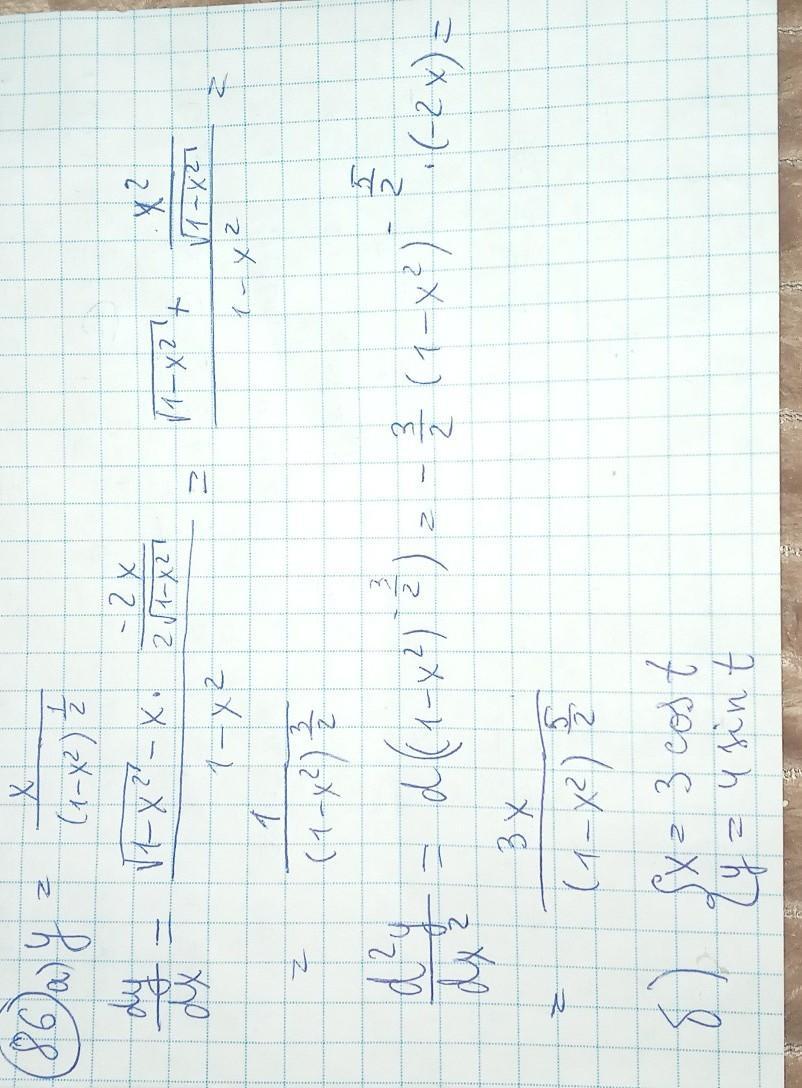 86 а) y = x/(1-x²)^(1/2)
dy/dx = (√(1-x²) - x · (-2x)/(2√(1-x²)))/(1-x²) = (√(1-x²) + x²/√(1-x²))/(1-x²) =
= 1/(1-x²)^(3/2)
d²y/dx² = d((1-x²)^(-3/2)) = -3/2 (1-x²)^(-5/2) · (-2x) =
= 3x/(1-x²)^(5/2)
б) {x = 3 cos t
{y = 4 sin t